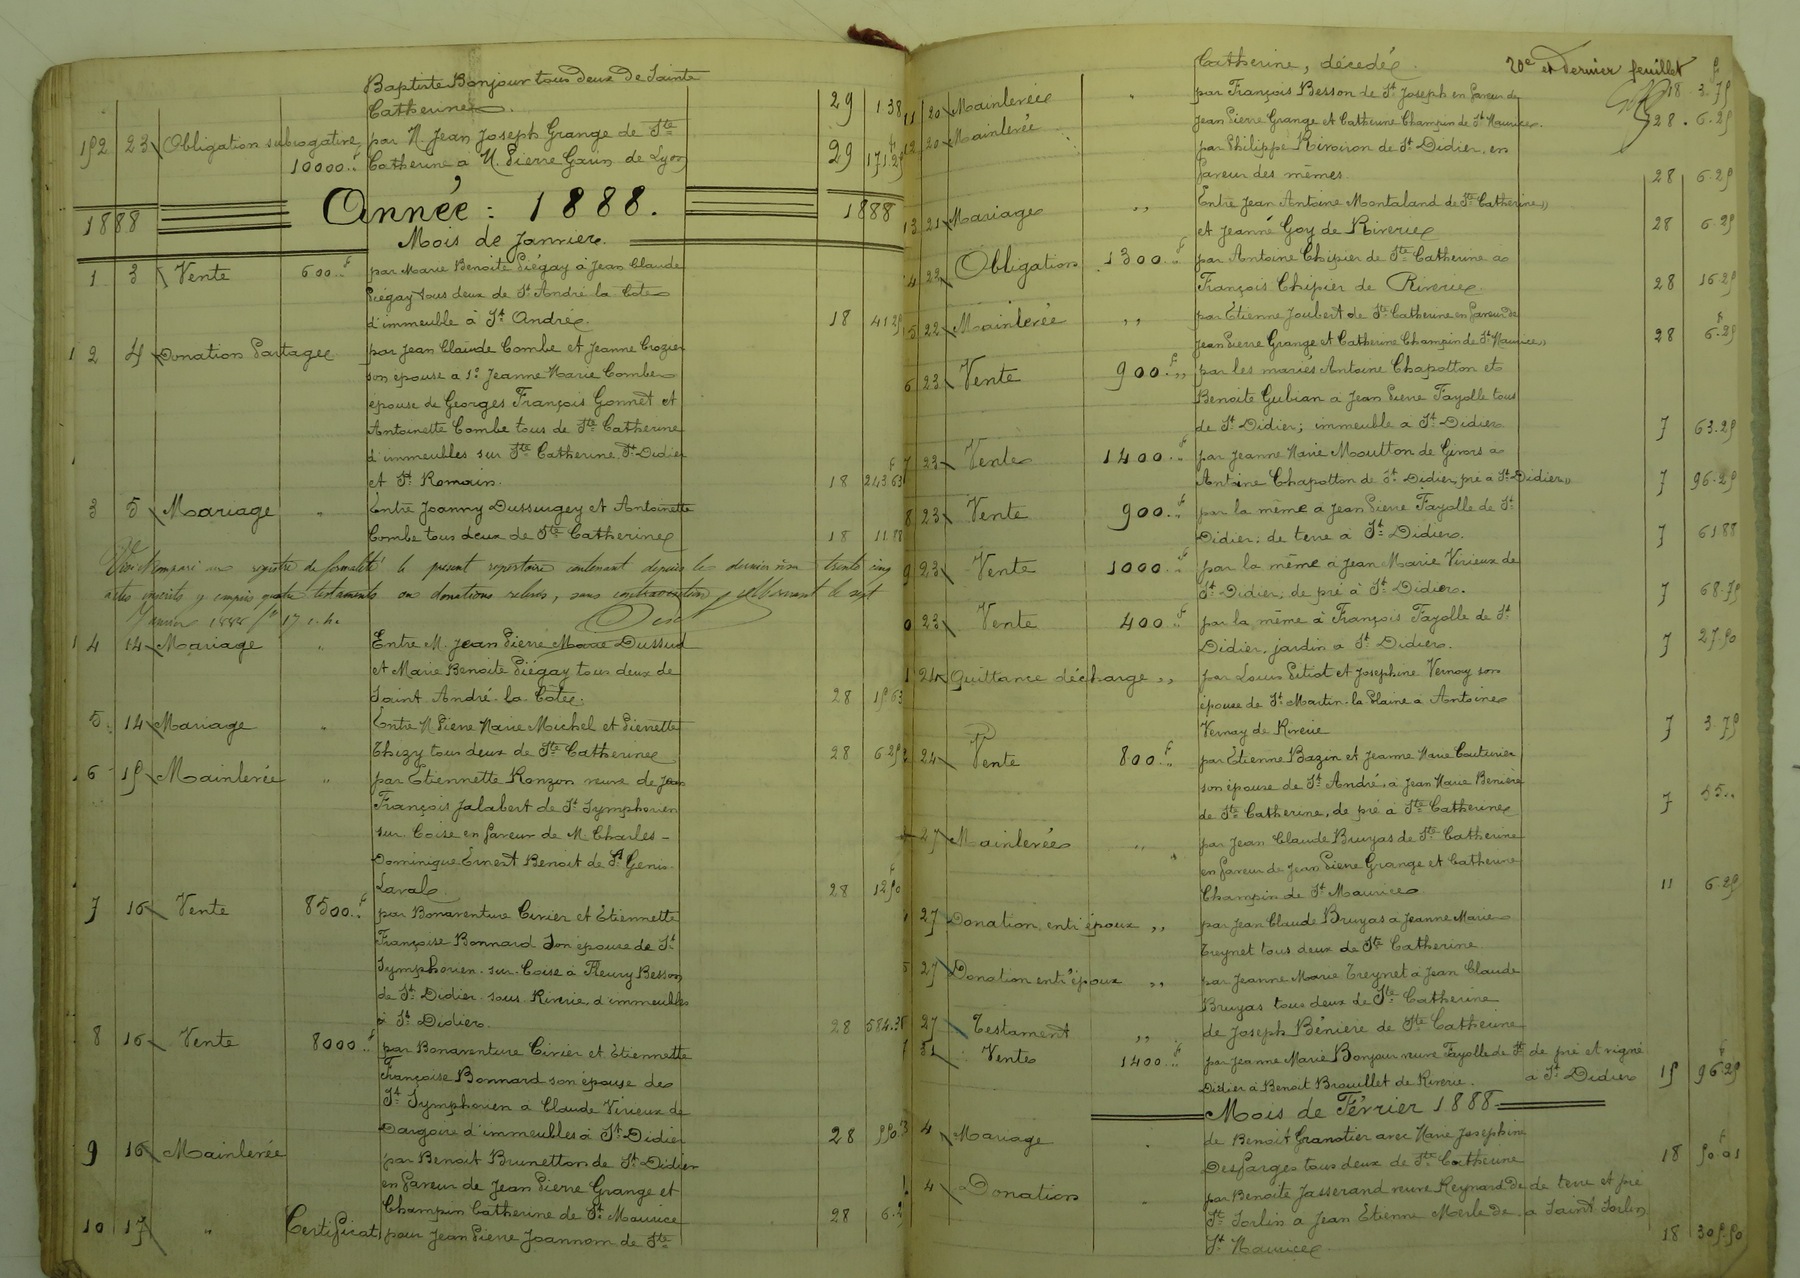 Baptiste Bonjour tous deux de Sainte
Catherine. 29 1.38
192 23 Obligation subrogative, par M. Jean Joseph Grange de Ste
10000.. Catherine à M. Pierre Gaun de Lyon 29 171.25
1888 Année : 1888. 1888
Mois de Janvier.
1 3 Vente 600.. f par Marie Benoite Piégay à Jean Claude
Piégay tous deux de St André la Côte
d'immeuble à St André. 18 41.25
2 4 Donation Partage par Jean Claude Combe et Jeanne Crozier
son épouse à 1º Jeanne Marie Combe
épouse de Georges François Gonnet et
Antoinette Combe tous de Ste Catherine
d'immeubles sur Ste Catherine, St Didier
et St Romain. 18 243.63
3 5 Mariage " Entre Joanny Dussurgey et Antoinette
Combe tous deux de Ste Catherine 18 11.88
registre de formalité le présent repertoire contenant depuis le dernier visa trente cinq
actes inscrits y compris quatre testaments ou donations, sans contravention, Mornant le sept
Janvier 1888
4 14 Mariage " Entre M. Jean Pierre Marie Dussud
et Marie Benoite Piégay tous deux de
Saint André la Côte. 28 15 63
5 14 Mariage " Entre M. Pierre Marie Michel et Pierrette
Thizy tous deux de Ste Catherine 28 6 25
6 15 Mainlevée " par Etiennette Ronzon veuve de Jean
François Jalabert de St Symphorien
sur Coise en faveur de M. Charles-
Dominique Ernest Benoit de St Genis
Laval 28 12 50
7 16 Vente 8500.. f par Bonaventure Civier et Etiennette
Françoise Bonnard son épouse de St
Symphorien-sur-Coise à Fleury Besson
de St Didier sous Riverie, d'immeubles
à St Didier. 28 584.38
8 16 Vente 8000.. f par Bonaventure Civier et Etiennette
Françoise Bonnard son épouse de
St Symphorien à Claude Virieux de
Dargoire d'immeubles à St Didier 28 550.
9 16 Mainlevée par Benoit Brunetton de St Didier
en faveur de Jean Pierre Grange et
Champin Catherine de St Maurice 28 6.
10 17 " Certificat pour Jean Pierre Joannom de Ste
Catherine, décédé. 20e et dernier feuillet
20 Mainlevée " par François Besson de St Joseph en faveur de 18 3.75
Jean Pierre Grange et Catherine Champin de St Maurice. 28. 6.25
20 Mainlevée par Philippe Rivoiron de St Didier, en
faveur des mêmes. 28 6.25
21 Mariage " Entre Jean Antoine Montaland de Ste Catherine
et Jeanne Goy de Riverie 28 6.25
22 Obligation 1300.. f par Antoine Chipier de Ste Catherine à
François Chipier de Riverie. 28 16.25
22 Mainlevée " par Etienne Joubert de Ste Catherine en faveur de
Jean Pierre Grange et Catherine Champin de St Maurice 28 6.25
6 23 Vente 900. f " par les mariés Antoine Chapotton et
Benoite Gubian à Jean Pierre Fayolle tous
de St Didier; immeuble à St Didier 7 63.25
7 23 Vente 1400.. f par Jeanne Marie Moutton de Givors à
Antoine Chapotton de St Didier, pré à St Didier 7 96.25
8 23 Vente 900.. f par la même à Jean Pierre Fayolle de St
Didier; de terre à St Didier. 7 61.88
9 23 Vente 1000.. f par la même à Jean Marie Virieux de
St Didier; de pré à St Didier. 7 68.75
0 23 Vente 400.. f par la même à François Fayolle de St
Didier, jardin à St Didier. 7 27.50
1 24 Quittance décharge " par Louis Pitiot et Josephine Vernay son
épouse de St Martin-la-Plaine à Antoine
Vernay de Riverie 7 3.75
24 Vente 800.. f par Etienne Bazin et Jeanne Marie Couturier
son épouse de St André, à Jean Marie Beniere
de Ste Catherine, de pré à Ste Catherine 7 55..
27 Mainlevée " par Jean Claude Bruyas de Ste Catherine
en faveur de Jean Pierre Grange et Catherine
Champin de St Maurice 11 6.25
27 Donation entr'époux " par Jean Claude Bruyas à Jeanne Marie
Treynet tous deux de Ste Catherine.
27 Donation entr'époux " par Jeanne Marie Treynet à Jean Claude
Bruyas tous deux de Ste Catherine
27 Testament " de Joseph Bénière de Ste Catherine
31 Vente 1400.. f par Jeanne Marie Bonjour veuve Fayolle de St de pré et vigne
Didier à Benoit Brouillet de Riverie. à St Didier 15 96.25
Mois de Février 1888.
4 Mariage de Benoit Granotier avec Marie Josephine
Desfarges tous deux de Ste Catherine 18 50.01
4 Donation par Benoite Jasserand veuve Reynard de de terre et pré
St Sorlin à Jean Etienne Merle de à Saint Sorlin
St Maurice 18 305.50